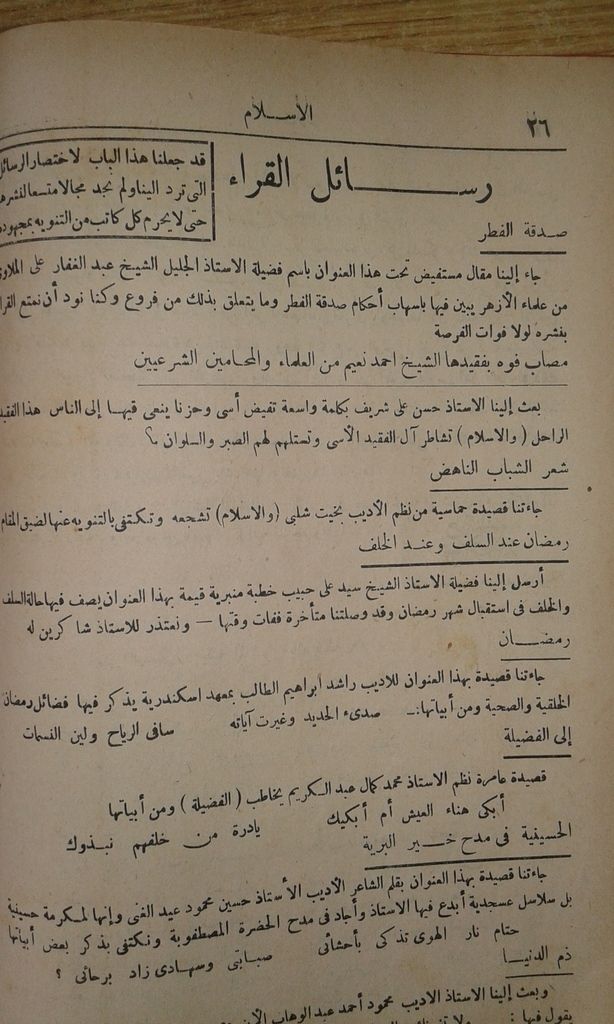 الاسلام
٢٦
رسائل القراء
قد جعلنا هذا الباب لاختصار الرسائل
التى ترد الينا ولم نجد مجالا متسعا لنشرها
حتى لا يحرم كل كاتب من التنويه بمجهوده
صدقة الفطر
جاء إلينا مقال مستفيض تحت هذا العنوان باسم فضيلة الاستاذ الجليل الشيخ عبد الغفار على
من علماء الأزهر يبين فيها باسهاب أحكام صدقة الفطر وما يتعلق بذلك من فروع وكنا نود أن نمتع
بنشره لولا فوات الفرصة
مصاب فوه بفقيدها الشيخ احمد نعيم من العلماء والمحامين الشرعيين
بعث إلينا الاستاذ حسن على شريف بكلمة واسعة تفيض أسى وحزنا ينعى فيها إلى الناس هذا
الراحل ( والاسلام ) تشاطر آل الفقيد الأسى وتستلهم لهم الصبر والسلوان
شعر الشباب الناهض
جاءتنا قصيدة حماسية من نظم الأديب بخيت شلبى (والاسلام) تشجعه وتكتفى بالتنويه عنها لضيق المقام
رمضان عند السلف وعند الخلف
أرسل إلينا فضيلة الاستاذ الشيخ سيد على حبيب خطبة منبرية قيمة بهذا العنوان يصف فيها حالة السلف
والخلف فى استقبال شهر رمضان وقد وصلتنا متأخرة ففات وقتها — ونعتذر للاستاذ شاكرين له
رمضان
جاءتنا قصيدة بهذا العنوان للاديب راشد ابراهيم الطالب بمعهد اسكندرية يذكر فيها فضائل رمضان
الخلقية والصحية ومن أبياتها:— صدىء الحديد وغيرت آياته سافى الرياح ولين النسمات
إلى الفضيلة
قصيدة عامرة نظم الاستاذ محمد كمال عبد الكريم يخاطب ( الفضيلة ) ومن أبياتها
أبكى هناء العيش أم أبكيك يادرة من خلفهم نبذوك
الحسينية فى مدح خير البرية
جاءتنا قصيدة بهذا العنوان بقلم الشاعر الأديب الأستاذ حسين محمود عبد الغنى وإنها لمكرمة حسينية
بل سلاسل عسجدية أبدع فيها الاستاذ وأجاد فى مدح الحضرة المصطفوية ونكتفى بذكر بعض أبياتها
حتام نار الهوى تذكى بأحشائى صبابتى وسهادى زاد برحائى ؟
ذم الدنيا
وبعث إلينا الاستاذ الاديب محمود أحمد عبد الوهاب
يقول فيها :